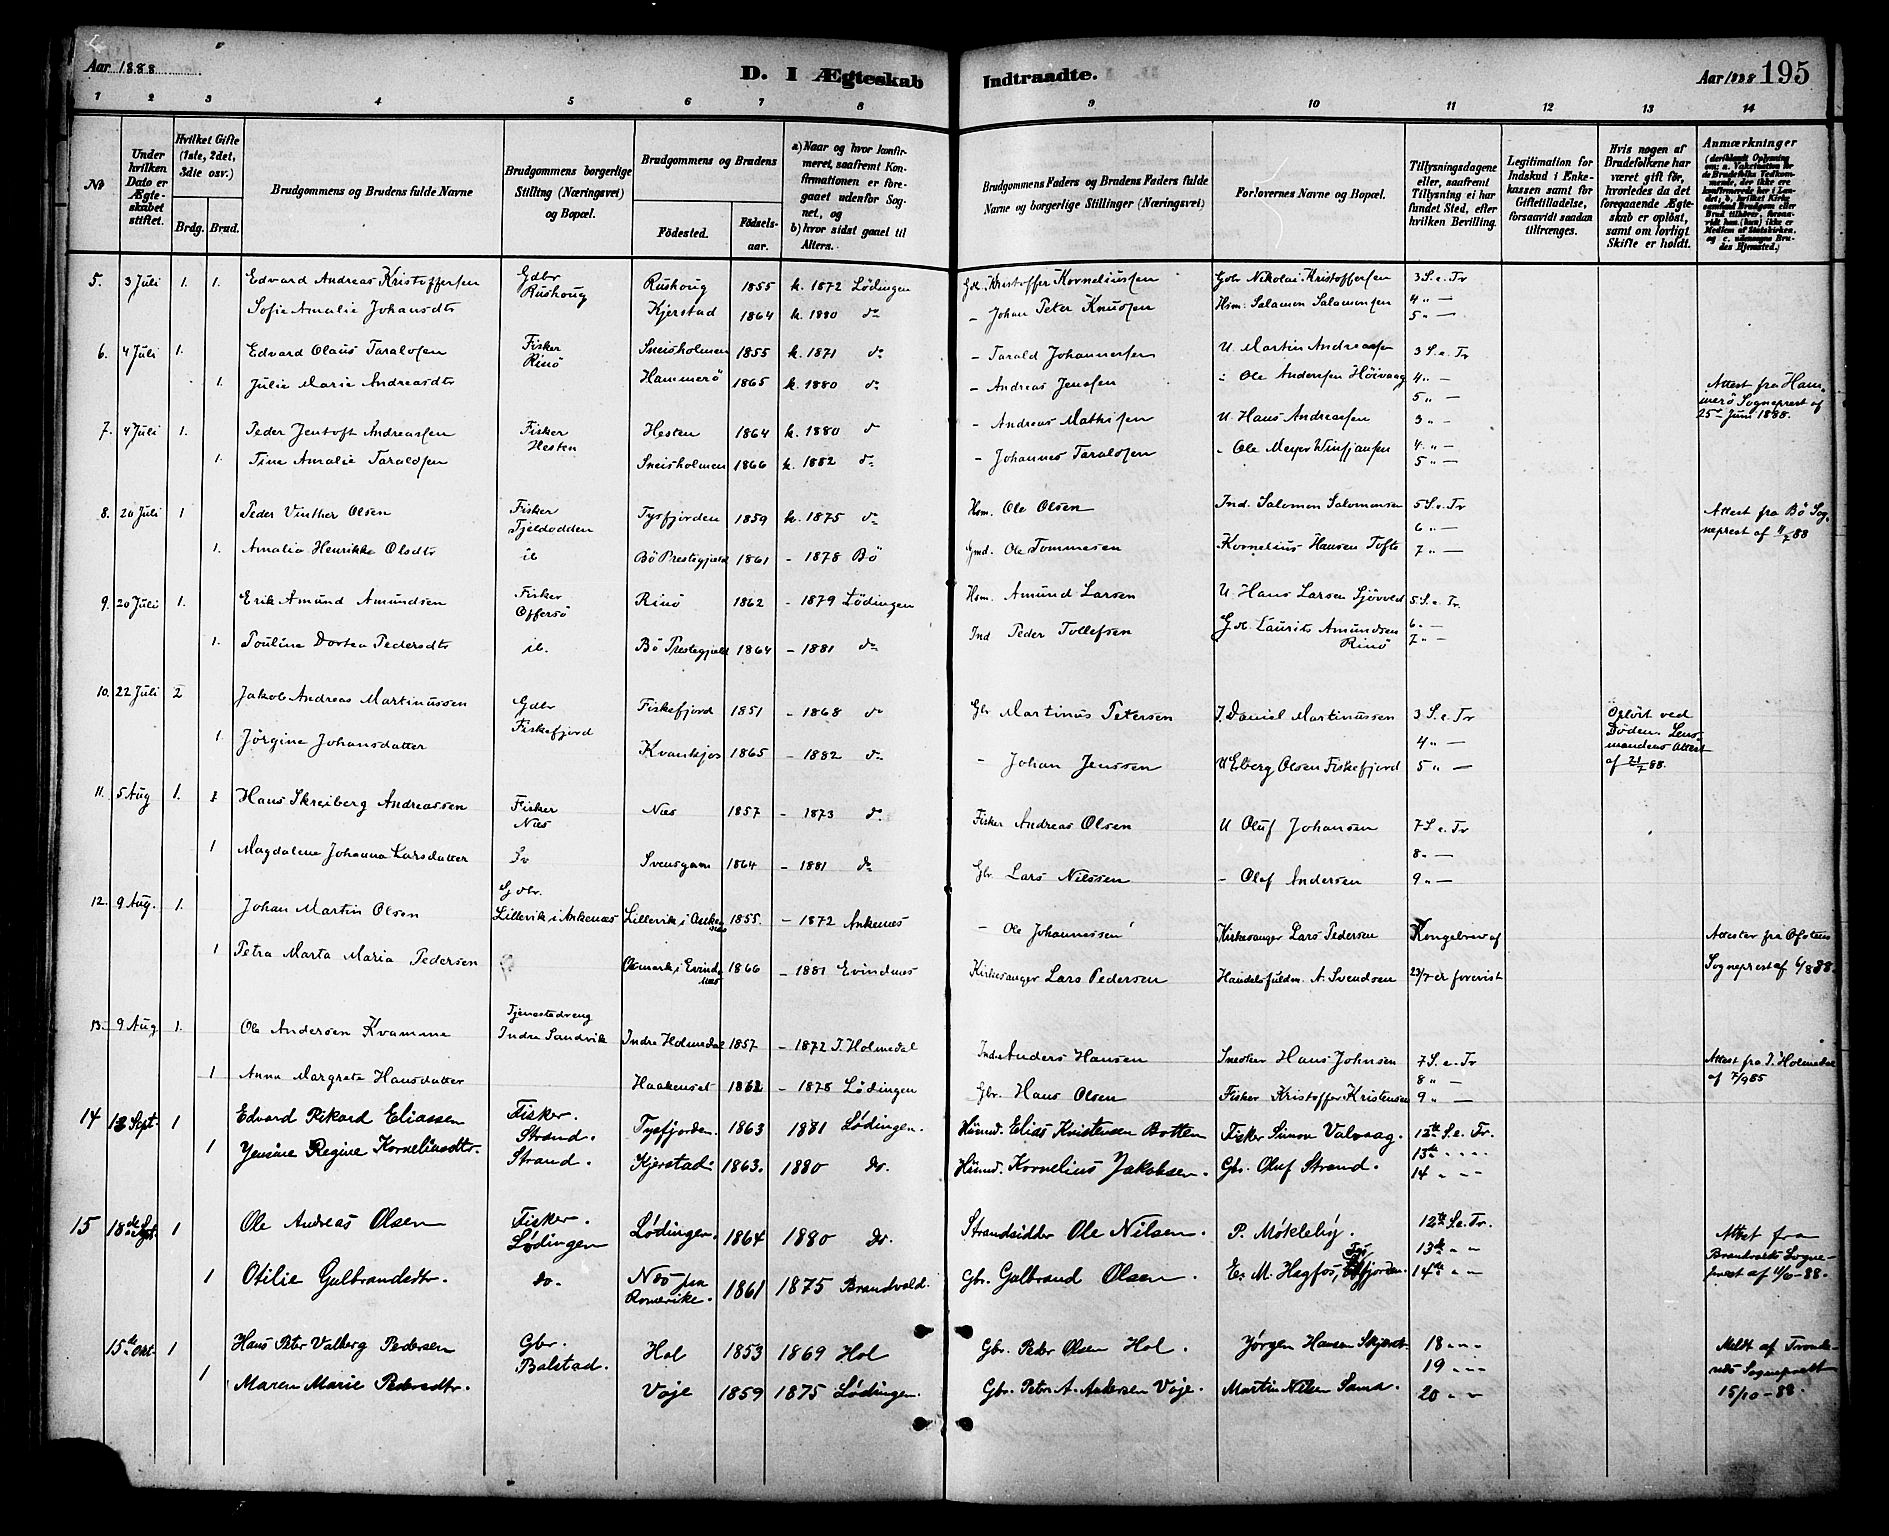 Aar 1888
D. I Ægteskab Indtraadte.
Aar 1888 195
1 2 3 4 5 6 7 8 9 10 11 12 13 14
No
Under hvilken Dato er Ægteskabet stiftet.
Hvilket Gifte (1ste, 2det, 3die osv.)
Brdg. Brud.
Brudgommens og Brudens fulde Navne
Brudgommens borgerlige Stilling (Næringsvei) og Bopæl.
Brudgommens og Brudens
Fødested. Fødselsaar.
a) Naar og hvor konfirmeret, saafremt Konfirmationen er foregaaet udenfor Sognet, og
b) hvor sidst gaaet til Alters.
Brudgommens Faders og Brudens Faders fulde Navne og borgerlige Stillinger (Næringsvei)
Forlovernes Navne og Bopæl.
Tillysningsdagene eller, saafremt Tillysning ei har fundet Sted, efter hvilken Bevilling.
Legitimation for Indskud i Enkekassen samt for Giftetilladelse, forsaavidt saadan tiltrænges.
Hvis nogen af Brudefolkene har været gift før, hvorledes da det foregaaende Ægteskab er opløst, samt om lovligt Skifte er holdt.
Anmærkninger
5. 3 Juli 1. 1. Edvard Andreas Kristoffersen Gdbr Rushoug Rushoug 1855 k. 1872 Lødingen Gdl. Kristoffer Korneliussen Gbr Nikolai Kristoffersen 3 S. e. Tr
Sofie Amalie Johansdtr Kjerstad 1864 k. 1880 do - Johan Peter Knudsen Hsm. Salamon Salamonsen 4 " —
5 " —
6. 4 Juli 1. Edvard Olaus Taraldsen Fisker Rinø Sneisholmen 1855 k. 1871 do - Tarald Johannessen U. Martin Andreassen 3 S. e. Tr
1. Julie Marie Andreasdtr Hammerø 1865 k. 1880 do - Andreas Jensen " Ole Andersen Höivaag 4 " —
5 " —
Attest fra Hammerö Sogneprest af 25de Juni 1888.
7. 4 Juli 1. Peder Jentoft Andreassen Fisker Hesten Hesten 1864 k. 1880 do - Andreas Mathisen U. Hans Andreassen 3 " —
1. Tine Amalie Taraldsen Sneisholmen 1866 k. 1882 do - Johannes Taraldsen - Ole Meyer Winsjansen 4 " —
5 " —
8. 20 Juli 1 Peder Vinther Olsen Fisker Tjeldodden Tysfjorden 1859 k. 1875 do Hsm. Ole Olsen Ind. Salomon Salomonsen 5 S. e. Tr
6 " —
1. Amalia Henrikke Olsdtr ib Bö Prestegjeld 1861 - 1878 Bö Gmd. Ole Tommesen Kornelius Hansen Tofte 7 " —
Attest fra Bö Sogneprest af 11/7 88
9. 20 Juli 1. Erik Amund Amundsen Fisker Offersö Rinö 1862 - 1879 Lödingen Hsm. Amund Larsen U. Hans Larsen Sjövold 5 S. e. Tr.
6 " —
1. Pouline Dortea Pedersdtr ib. Bö Prestegjeld 1864 - 1881 do Ind Peder Tollefsen G.dl. Laurits Amundsen Rinö 7 " —
10. 22 Juli 2 Jakob Andreas Martinussen Gdbr Fiskefjord Fiskefjord 1851 - 1868 do Gbr Martinus Petersen J. Daniel Martinussen 3 S. e. Tr
4 " —
1. Jörgine Johansdatter Kvankjos 1865 - 1882 do - Johan Jenssen U Elberg Olsen Fiskefjord 5 " —
Opløst ved Døden. Lensmandens Attest af 21/7 88.
11. 5 Aug 1. Hans Skreiberg Andreassen Fisker Næs Næs 1857 - 1873 do. Fisker Andreas Olsen U Oluf Johansen 7 S. e. Tr
8 " —
1 Magdalene Johanna Larsdatter Svensgam 1864 - 1881 do Gbr. Lars Nilssen - Olaf Andersen 9 " —
12. 9 Aug. 1. Johan Martin Olsen Gdbr. Lillevik i Ankenæs Lillevik i Ankenæs 1855. - 1872 Ankenæs - Ole Johannessen Kirkesanger Lars Pedersen Kongebrev af
1 Petra Marta Maria Pedersen Osmark i Evindnæs 1866 - 1881 Evindnæs Kirkesanger Lars Pedersen Handelsfuldm. A. Svendsen 23/7 er forevist
Attester fra Ofotens Sogneprest af 6/8 88.
13. 9 Aug 1. Ole Andersen Kvamme Tjenestedreng Indre Sandvik Indre Holmedal 1857 - 1872 I. Holmedal Inds Anders Hansen Snedker Hans Johnsen 7 S. e. Tr
8 " —
1 Anna Margrete Hansdatter Haakenset 1862 - 1878 Lödingen Gbr. Hans Olsen Fisker Kristoffer Kristensen 9 " —
Attest fra I. Holmedal af 7/9 85
14 12 Sept. 1 Edvard Rikard Eliassen Fisker. Strand. Tysfjorden. 1863 1881 Lødingen. Husmd. Elias Kristensen Botten Fisker Simon Valvaag. 12te S. e. Tr.
13de " "
1 Jensine Regine Korneliusdtr. Strand. Kjerstad. 1863. 1880 do. Husmd. Kornelius Jakobsen. Gbr. Oluf Strand. 14 " "
15 18de Sept. 1 Ole Andreas Olsen Fisker. Lødingen Lødingen. 1864 1880 do. Strandsidder Ole Nilsen. P. Møkleby. 12te S. e. Tr.
13de " "
1 Otilie Gulbrandsdtr. do. Næs paa Romerike. 1861 1875 Brandvold. Gbr. Gulbrand Olsen. Es. M. Hagfos, Tysfjorden. 14de " "
Attest fra Brandvolds Sogneprest af 11/6-88.
15de Okt. 1 Hans Peter Valberg Pedersen Gbr. Balstad. Hol 1853 1869 Hol Gbr. Peder Olsen Hol. Jørgen Hansen 18 " "
19 " "
1 Maren Marie Pedersdtr. Voje 1859 1875 Lødingen. Gbr. Peter A. Andersen Voje. Martin Nilsen Sand. 20 " "
Meldt af Sogneprest 15/10-88.